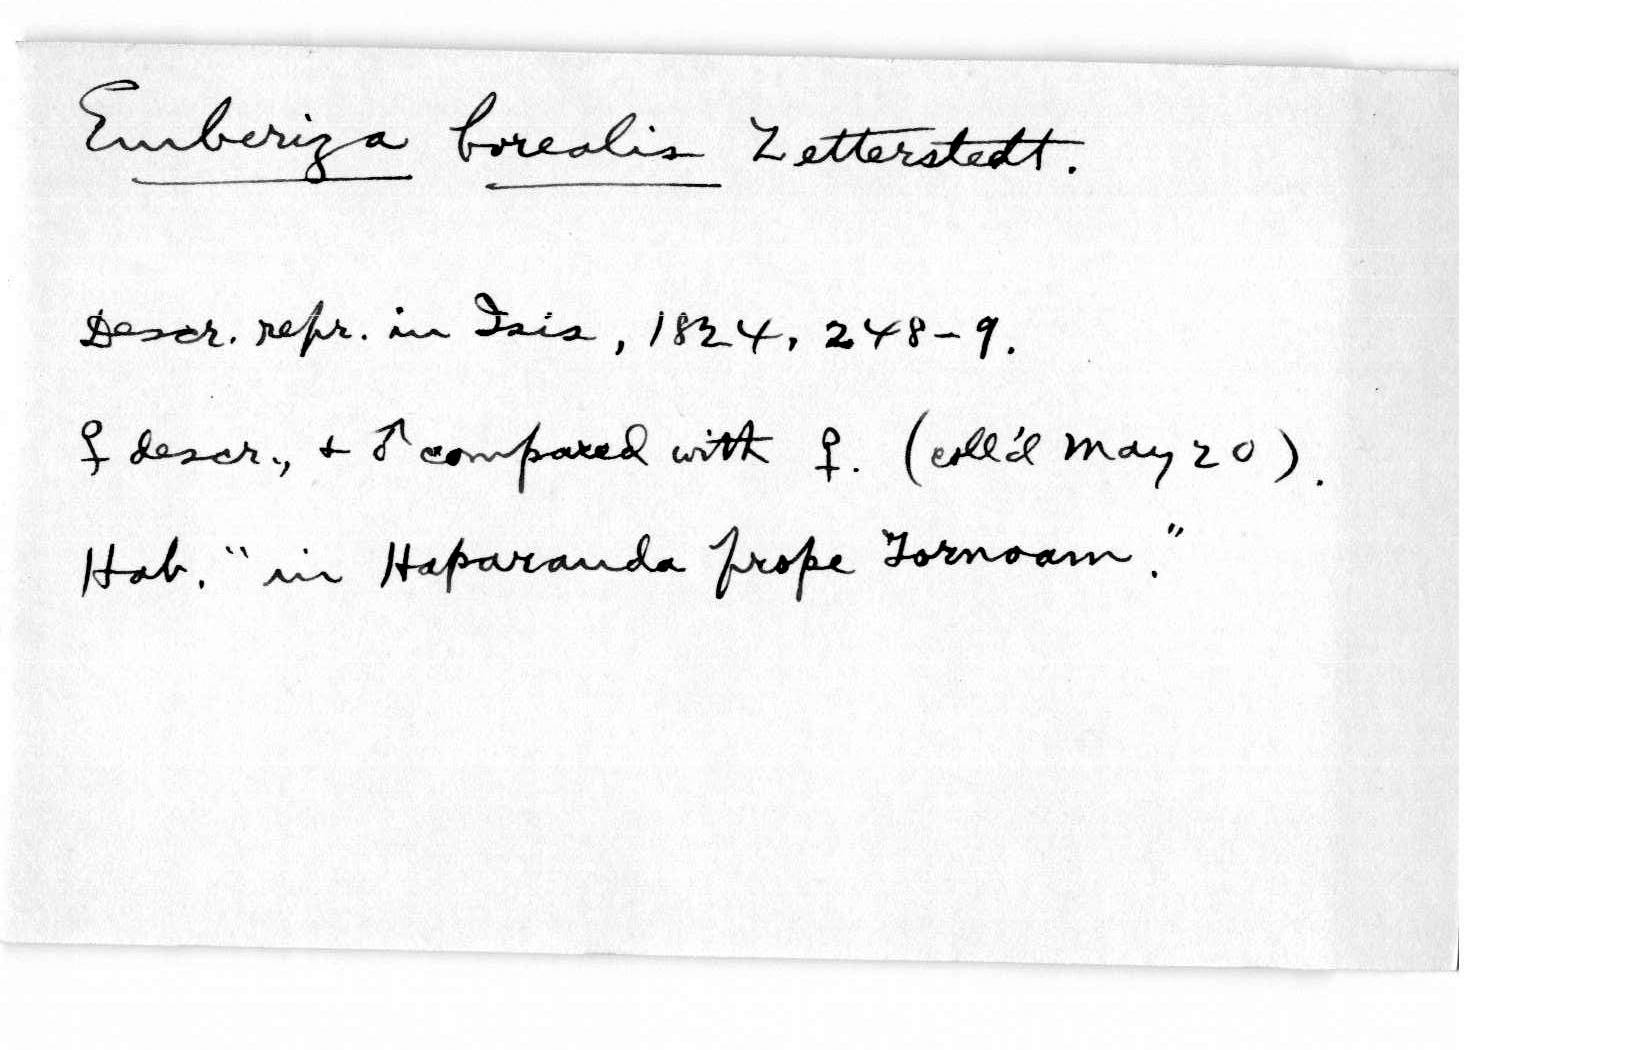 Emberiza borealis Zetterstedt.
Descr. repr. in Isis, 1824, 248-9.
♀ descr., + ♂ compared with ♀. (coll'd May 20).
Hab. "in Haparanda prope Tornoam."